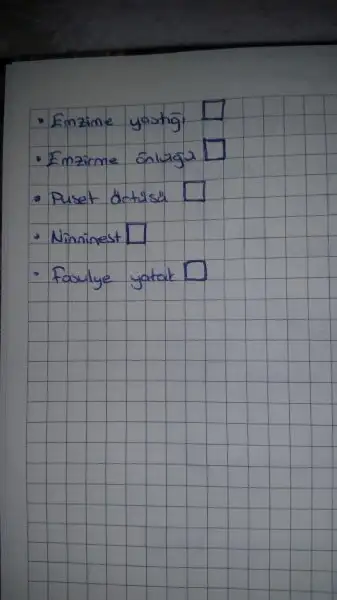 • Emzime yastığı
• Emzirme önlüğü
• Puset örtüsü
• Ninninest
• Fasulye yatak